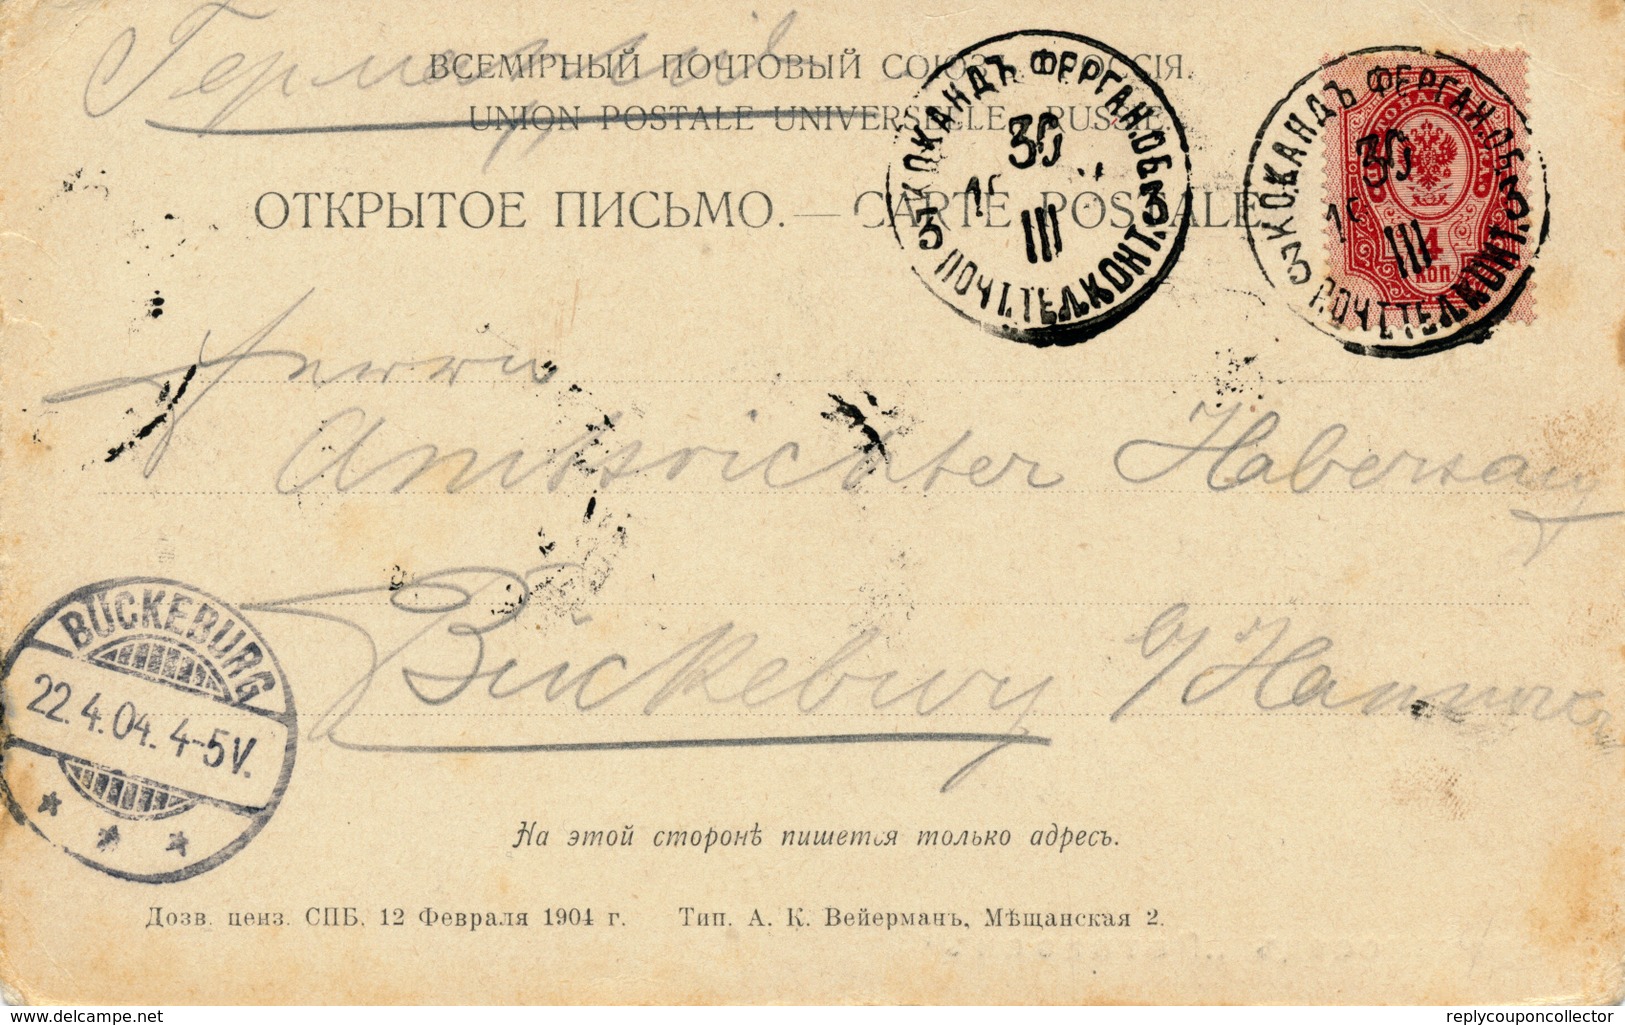 Германія
ВСЕМІРНЫЙ ПОЧТОВЫЙ СОЮЗЪ. РОССІЯ.
UNION POSTALE UNIVERSELLE. RUSSIE.
ОТКРЫТОЕ ПИСЬМО. — CARTE POSTALE.
КОКАНДЪ ФЕРГАН. ОБ.
30
III
3 ПОЧТ. ТЕЛ. КОНТ. 3
КОКАНДЪ ФЕРГАН. ОБ.
30
III
3 ПОЧТ. ТЕЛ. КОНТ. 3
4
КОП
Herrn
Amtsrichter Habersang
Bückeburg
a/Hannover
BÜCKEBURG
22.4.04. 4-5V.
* * *
На этой сторонѣ пишется только адресъ.
Дозв. ценз. СПБ. 12 Февраля 1904 г. Тип. А. К. Вейерманъ, Мѣщанская 2.
delcampe.net
replycouponcollector